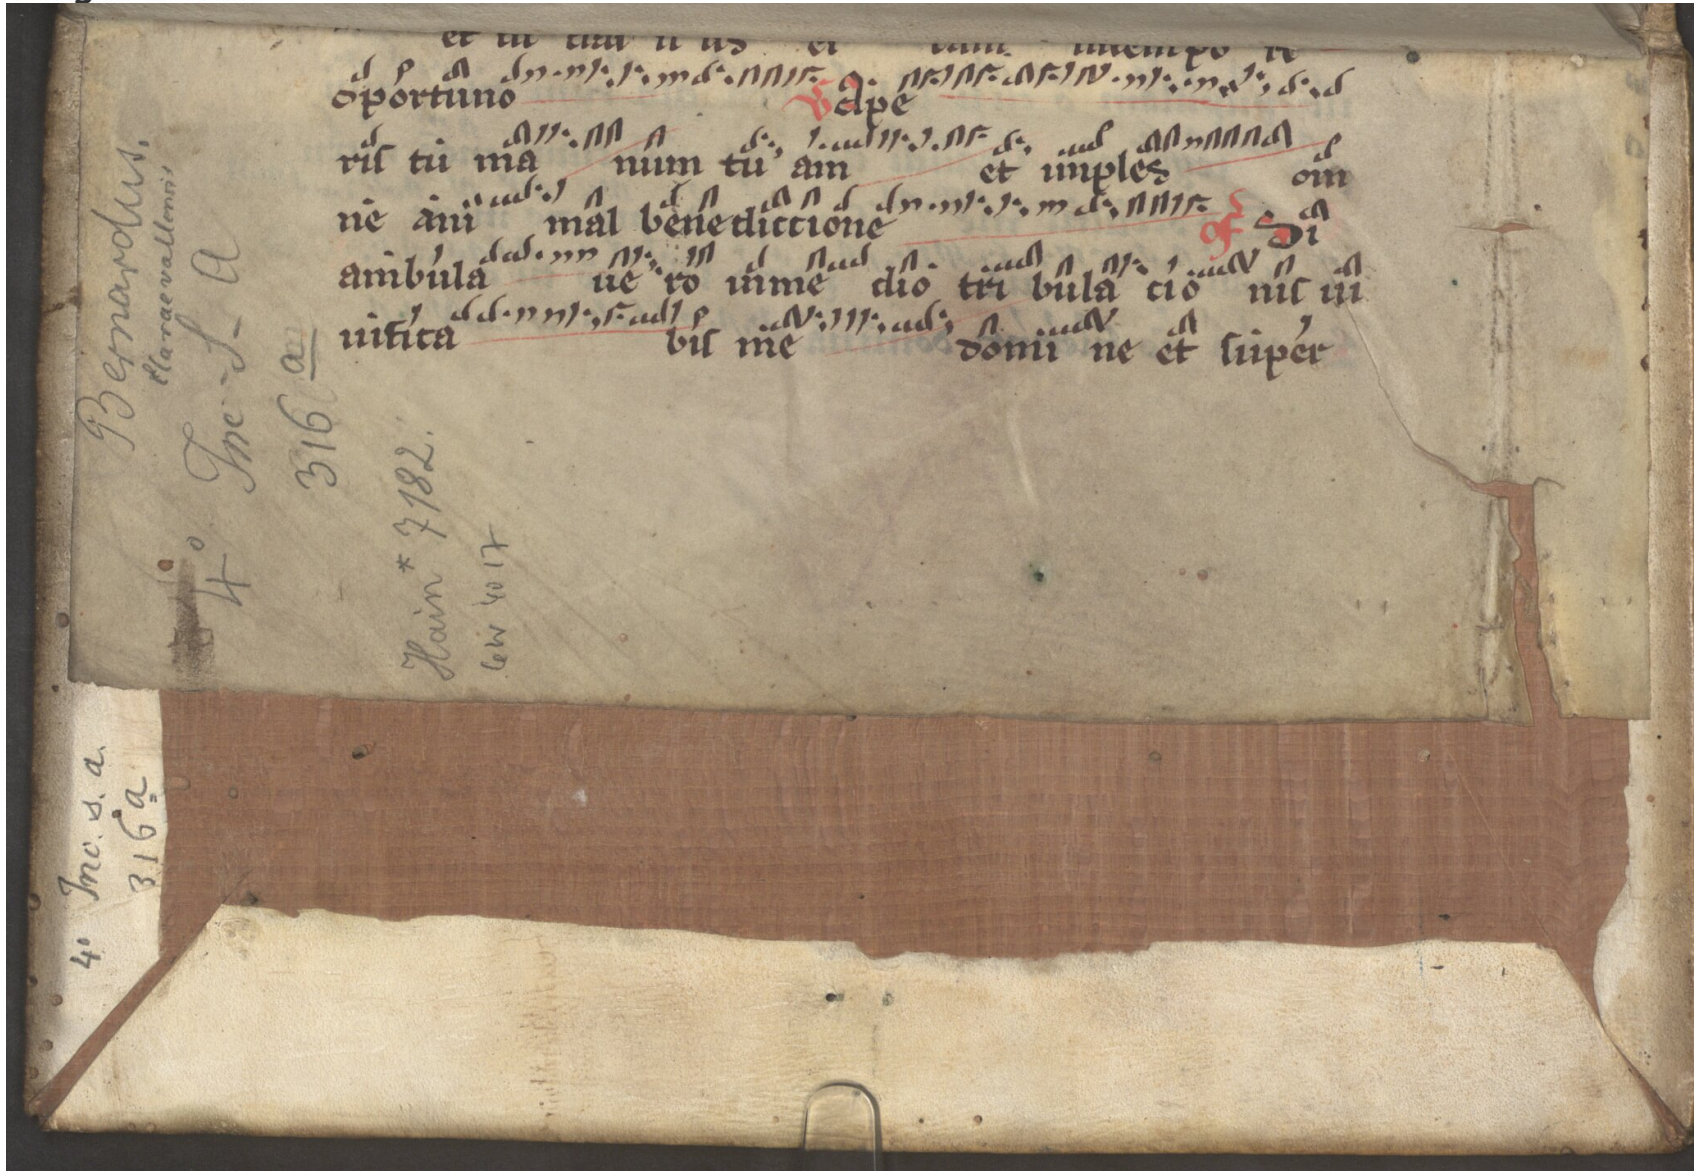 oportuno V Ape
ris tu ma num tu am et imples om
ne ani mal benedictione Of Si
ambula ve ro inme dio tri bula cio nis vi
vifica bis me domi ne et super
Bernardus.
Claraevallensis
4° Inc. s. a
316 a
Hain * 7182.
GW 4017
4° Inc. s. a.
316 a